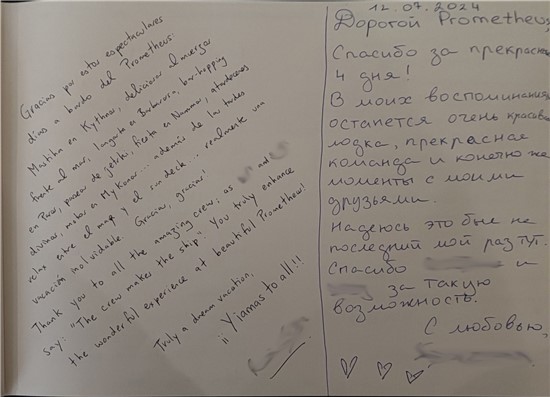 Gracias por estos espectaculares
días a bordo del Prometheus.
Mastika en Kythnos, delicioso almuerzo
frente al mar, langosta en Barbarossa, bar-hopping
en Paros, paseo de jetski, fiesta en Nammos, atardeceres
divinos, motos en Mykonos... además de las tardes
relax entre el mar y el sun deck... realmente una
vacación inolvidable. Gracias, gracias!
Thank you to all the amazing crew; as and
say: "The crew makes the ship". You truly enhance
the wonderful experience at beautiful Prometheus!
Truly a dream vacation,
¡¡Yiamas to all!!
12.07.2024
Дорогой Prometheus,
Спасибо за прекрасные
4 дня!
В моих воспоминаниях
останется очень красивая
лодка, прекрасная
команда и конечно же
моменты с моими
друзьями.
Надеюсь это был не
последний мой раз тут.
Спасибо и
за такую
возможность.
С любовью,